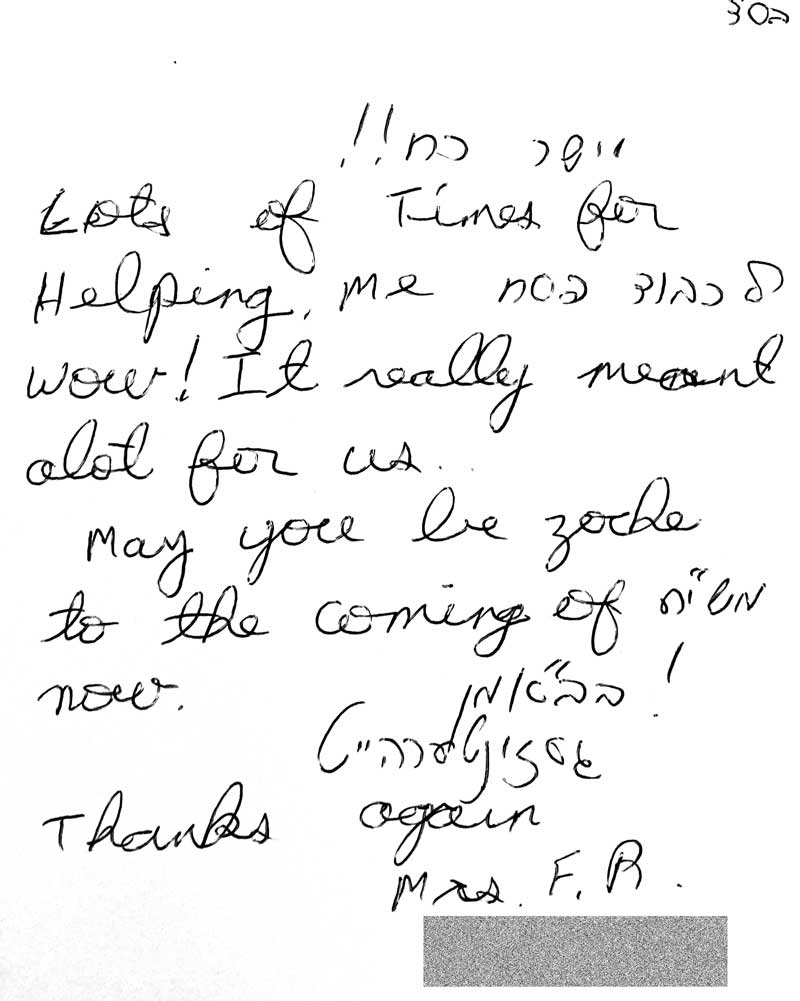 בסד
יישר כח!!
Lots of Times for
Helping, me לכבוד פסח
wow! It really meant
alot for us..
May you be zoche
to the coming of משי"ח
now. בב"א אמן!
געזינטערהייט
Thanks again
Mrs. F. R.